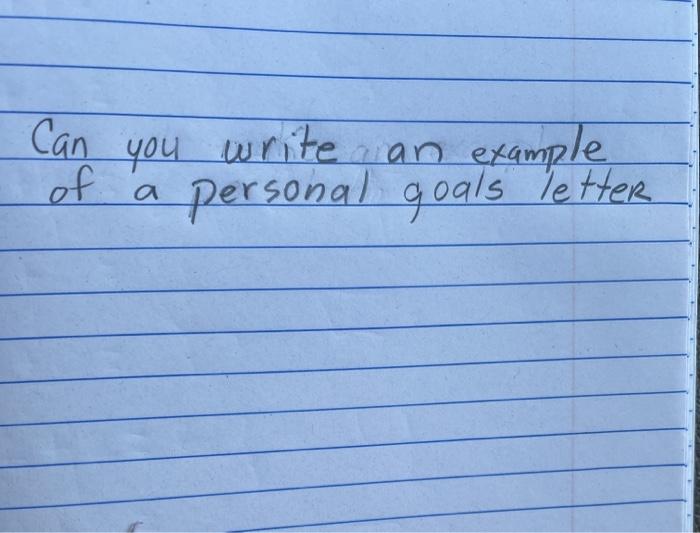 Can you write an example
of a personal goals letter